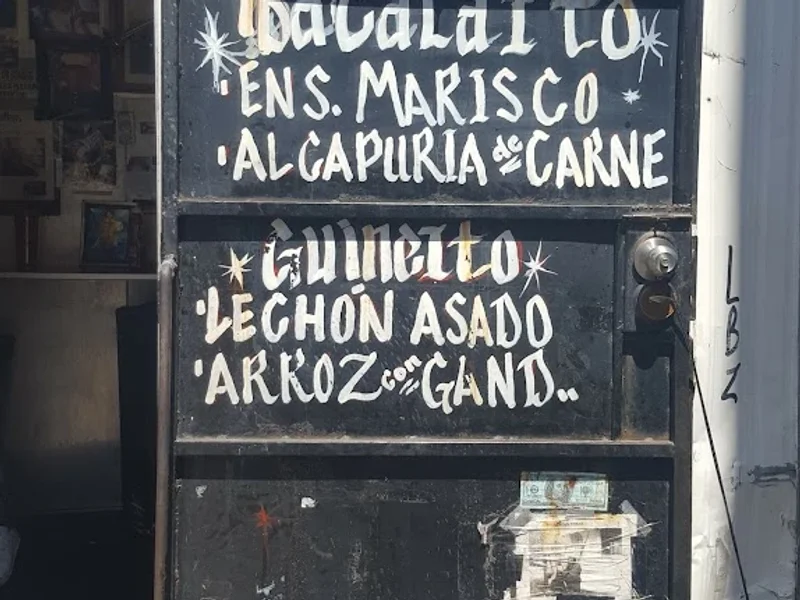 Bacalaito
·ENS. MARISCO
·ALCAPURIA de CARNE
Guineito
·LECHÓN ASADO
·ARROZ con GAND..
LBZ